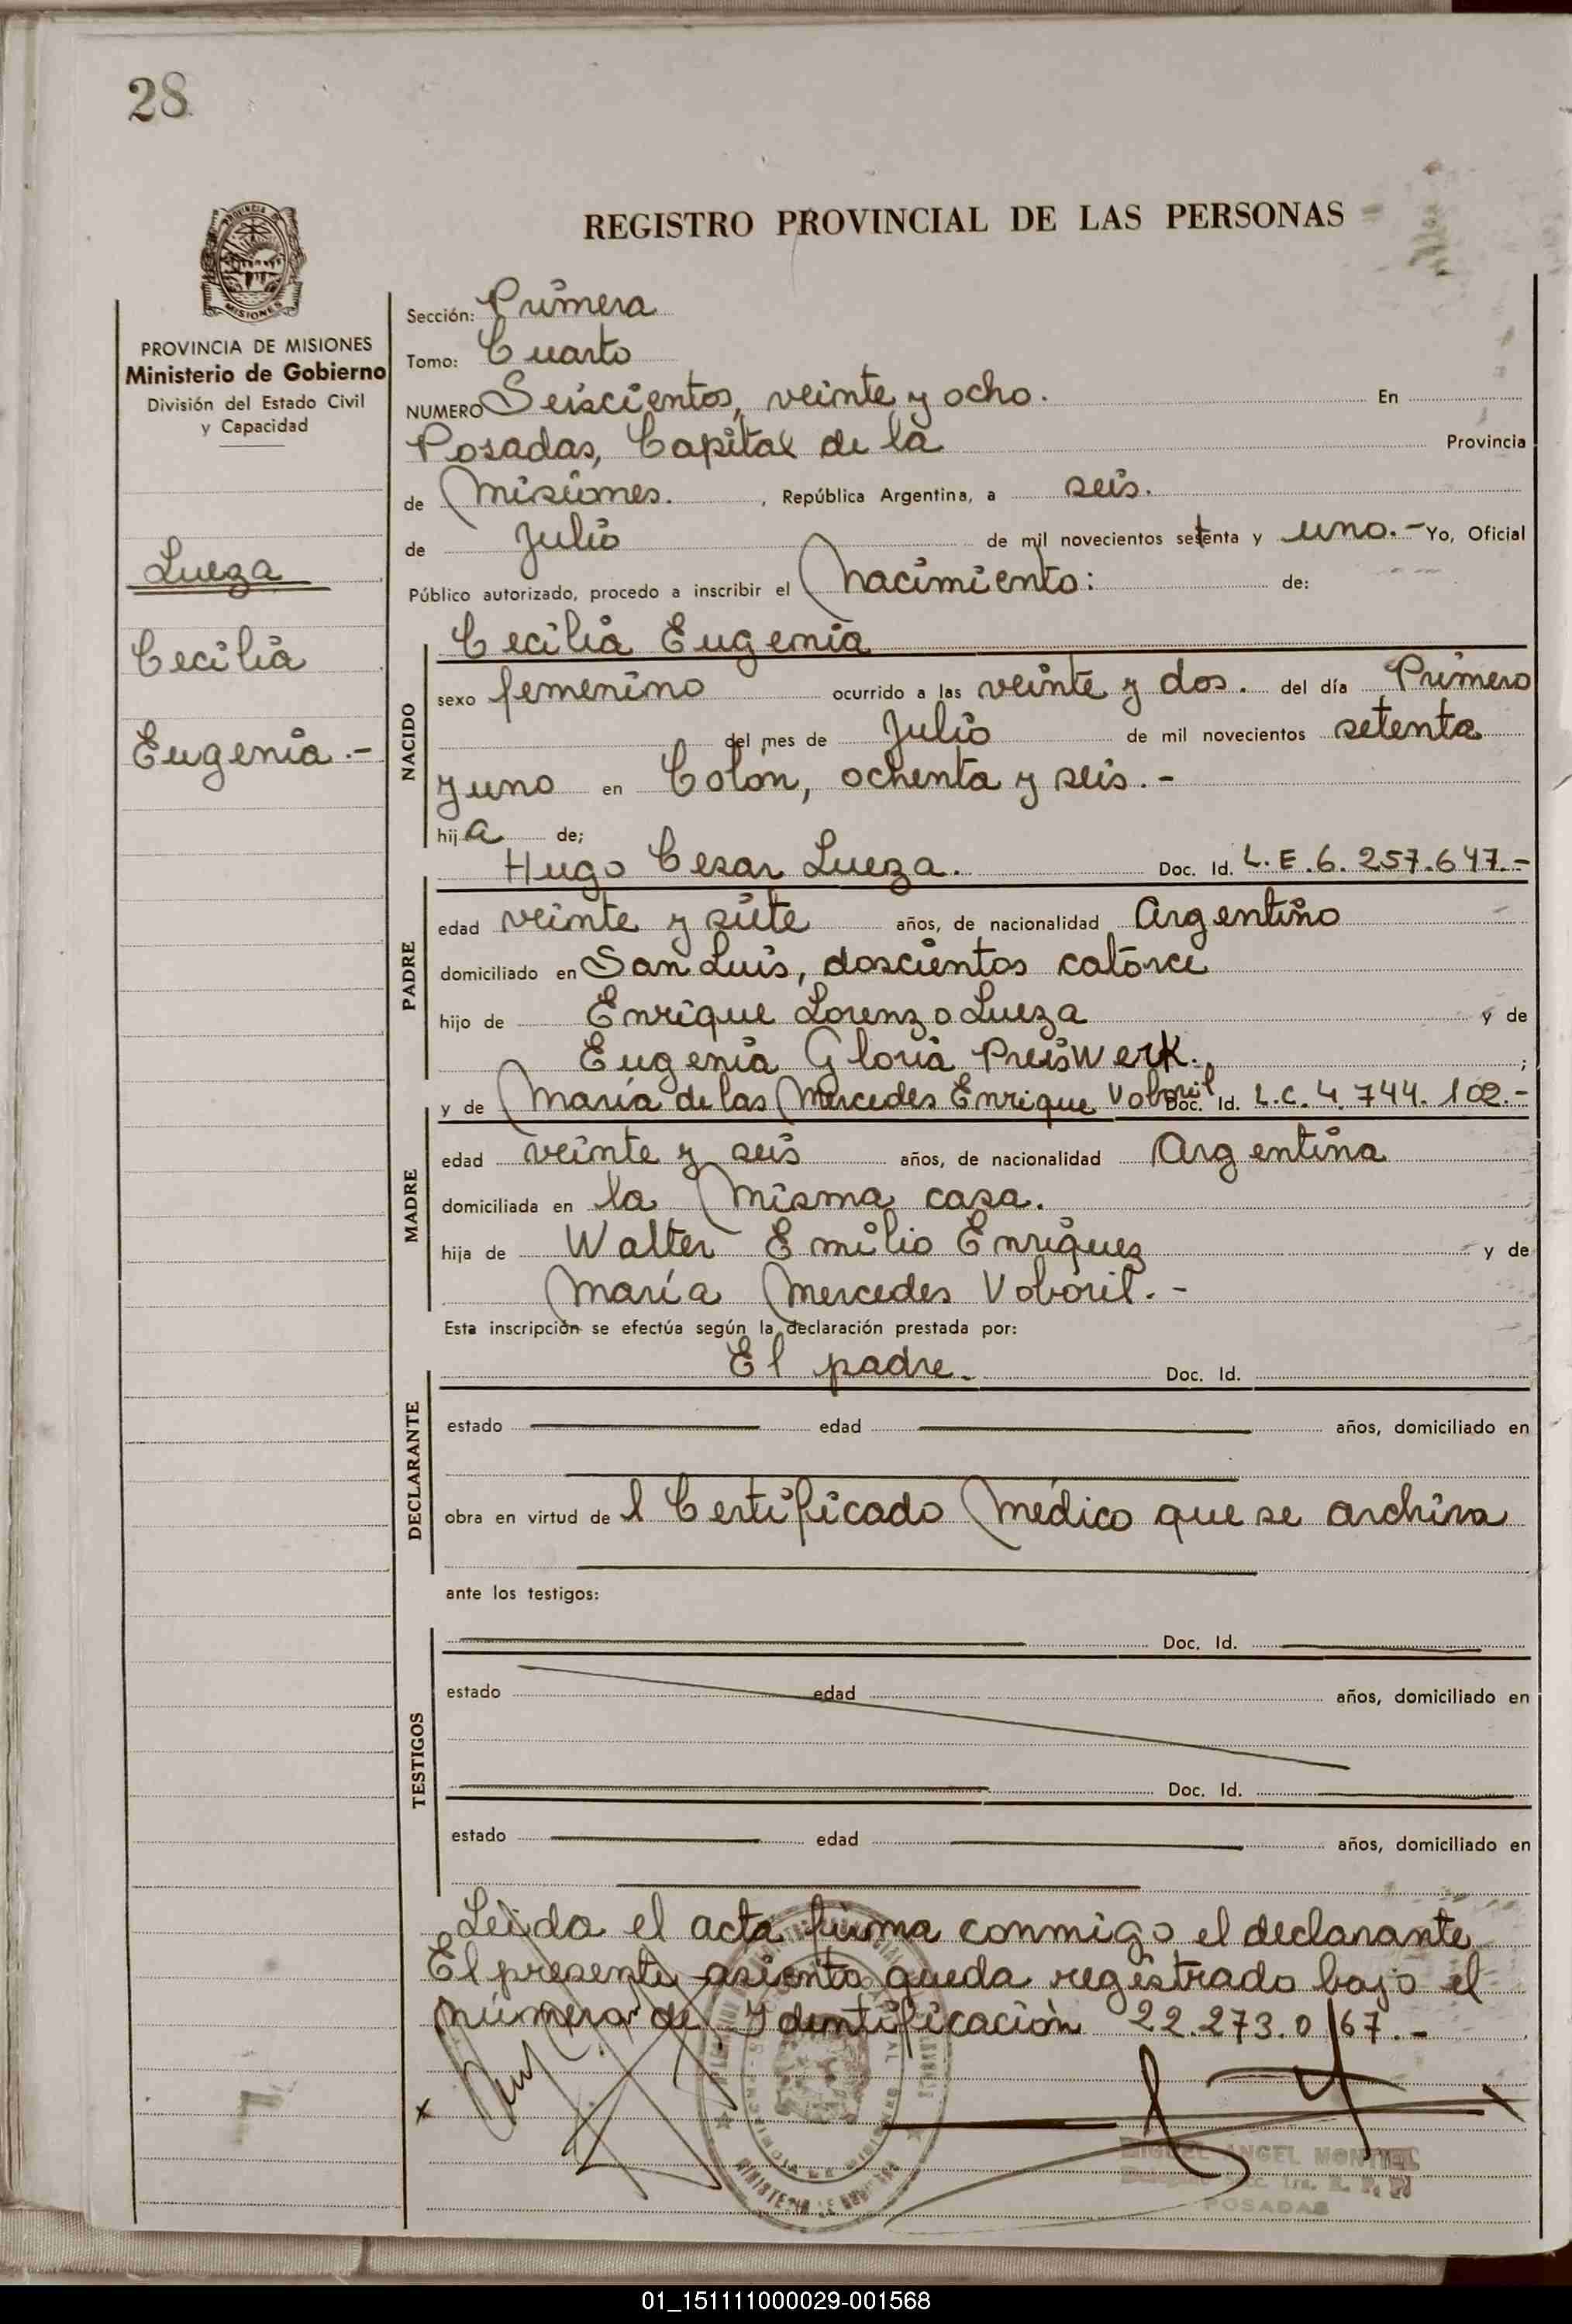 28
REGISTRO PROVINCIAL DE LAS PERSONAS
PROVINCIA DE MISIONES
Ministerio de Gobierno
División del Estado Civil
y Capacidad
Lueza
Cecilia
Eugenia.-
Sección: Primera
Tomo: Cuarto
NUMERO Seiscientos, veinte y ocho. En
Posadas, Capital de la Provincia
de Misiones. , República Argentina, a seis.
de Julio de mil novecientos setenta y uno.- Yo, Oficial
Público autorizado, procedo a inscribir el Nacimiento: de:
Cecilia Eugenia
NACIDO
sexo femenino ocurrido a las veinte y dos. del día Primero
del mes de Julio de mil novecientos setenta
y uno en Colón, ochenta y seis.-
hija de;
Hugo Cesar Lueza. Doc. Id. L.E.6.257.647.-
PADRE
edad veinte y siete años, de nacionalidad Argentino
domiciliado en San Luis, doscientos catorce
hijo de Enrique Lorenzo Lueza y de
Eugenia Gloria Preiswerk. ;
y de María de las Mercedes Enrique Voboril Doc. Id. L.C.4.744.102.-
MADRE
edad veinte y seis años, de nacionalidad Argentina
domiciliada en la misma casa.
hija de Walter Emilio Enriquez y de
María Mercedes Voboril.-
Esta inscripción se efectúa según la declaración prestada por:
El padre. Doc. Id.
DECLARANTE
estado edad años, domiciliado en
obra en virtud del Certificado Médico que se archiva
ante los testigos:
Doc. Id.
TESTIGOS
estado edad años, domiciliado en
Doc. Id.
estado edad años, domiciliado en
Leida el acta firma conmigo el declarante
El presente asiento queda registrado bajo el
número de Ydentificación 22.273.067.-
x
MIGUEL ANGEL MONTIEL
POSADAS
01_151111000029-001568